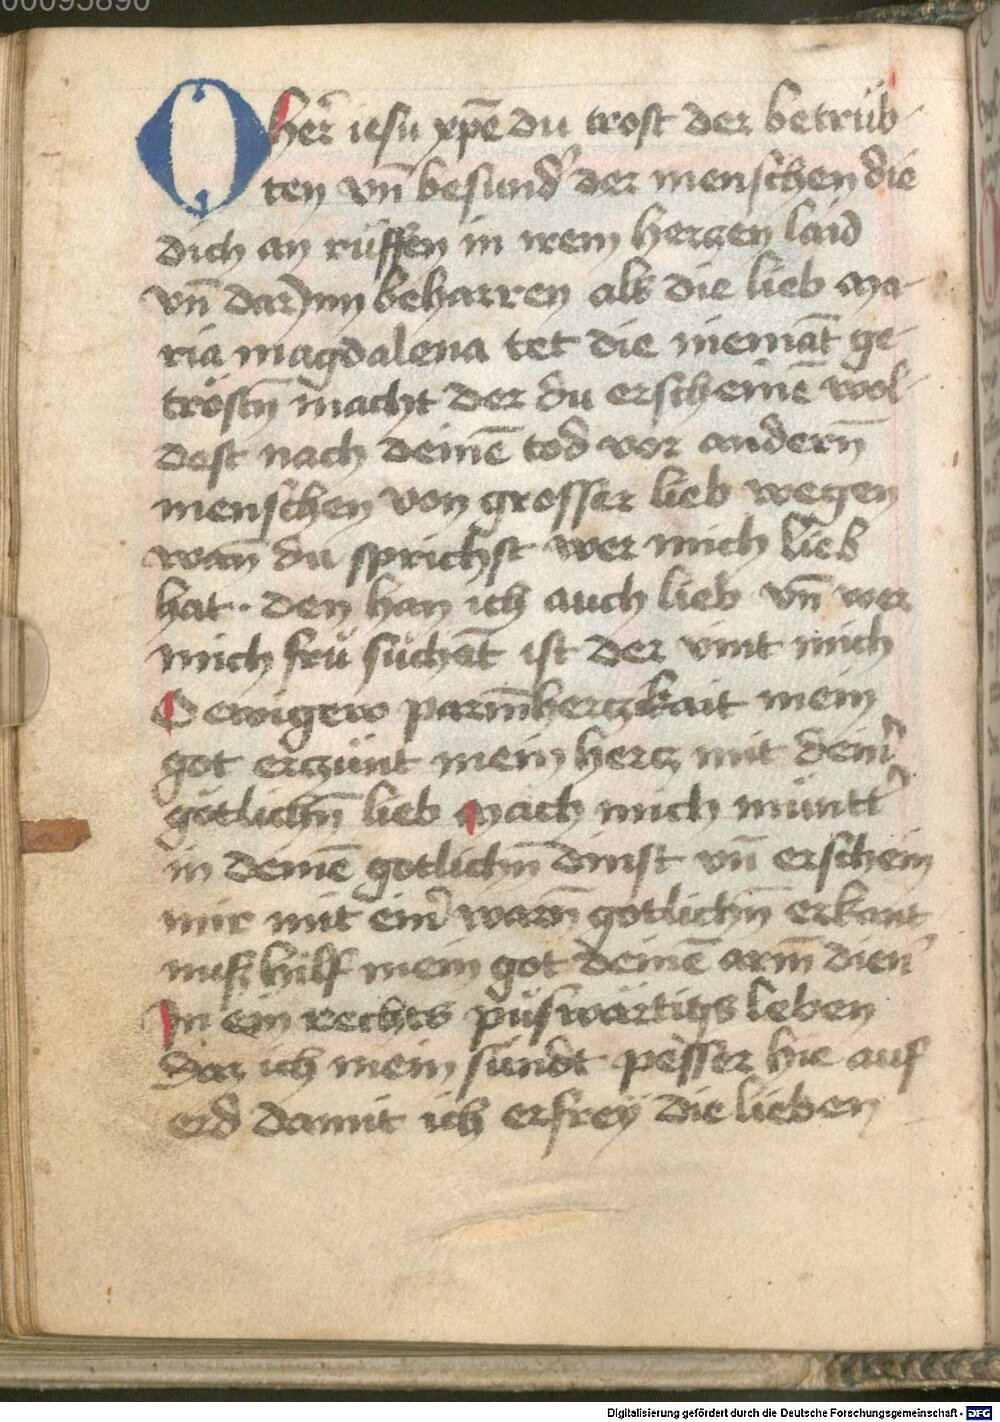 00095890
O her̄ iesu xp̄e du trost der betrüb-
ten vn̄ besund' der menschen die
dich an rüffen in irem herczen laid
vn̄ dar Inn beharren als die lieb ma-
ria magdalena tet die niemāt ge-
tröstn̄ macht der du erscheinē wol-
dest nach deinē tod vor andern̄
menschen von grosser lieb wegen
wan̄ du sprichst wer mich lieb
hat·· den han ich auch lieb vn̄ wer
mich frü süchāt ist der vint mich
O ewigew parm̄herczkait mein
got erczünt mein hercz mit dein'
götlichn̄ lieb Mach mich müntt'
in deinē gotlichn̄ dinst vn̄ erschein
mir mit ein' warn̄ gotlichn̄ erkant
nuß hilf mein got deinē arm̄ dien'
In ein rechts püswärtigs leben
Daz ich mein sündt pesser hie auf
erd damit ich erfrey die lieben
Digitalisierung gefördert durch die Deutsche Forschungsgemeinschaft - DFG